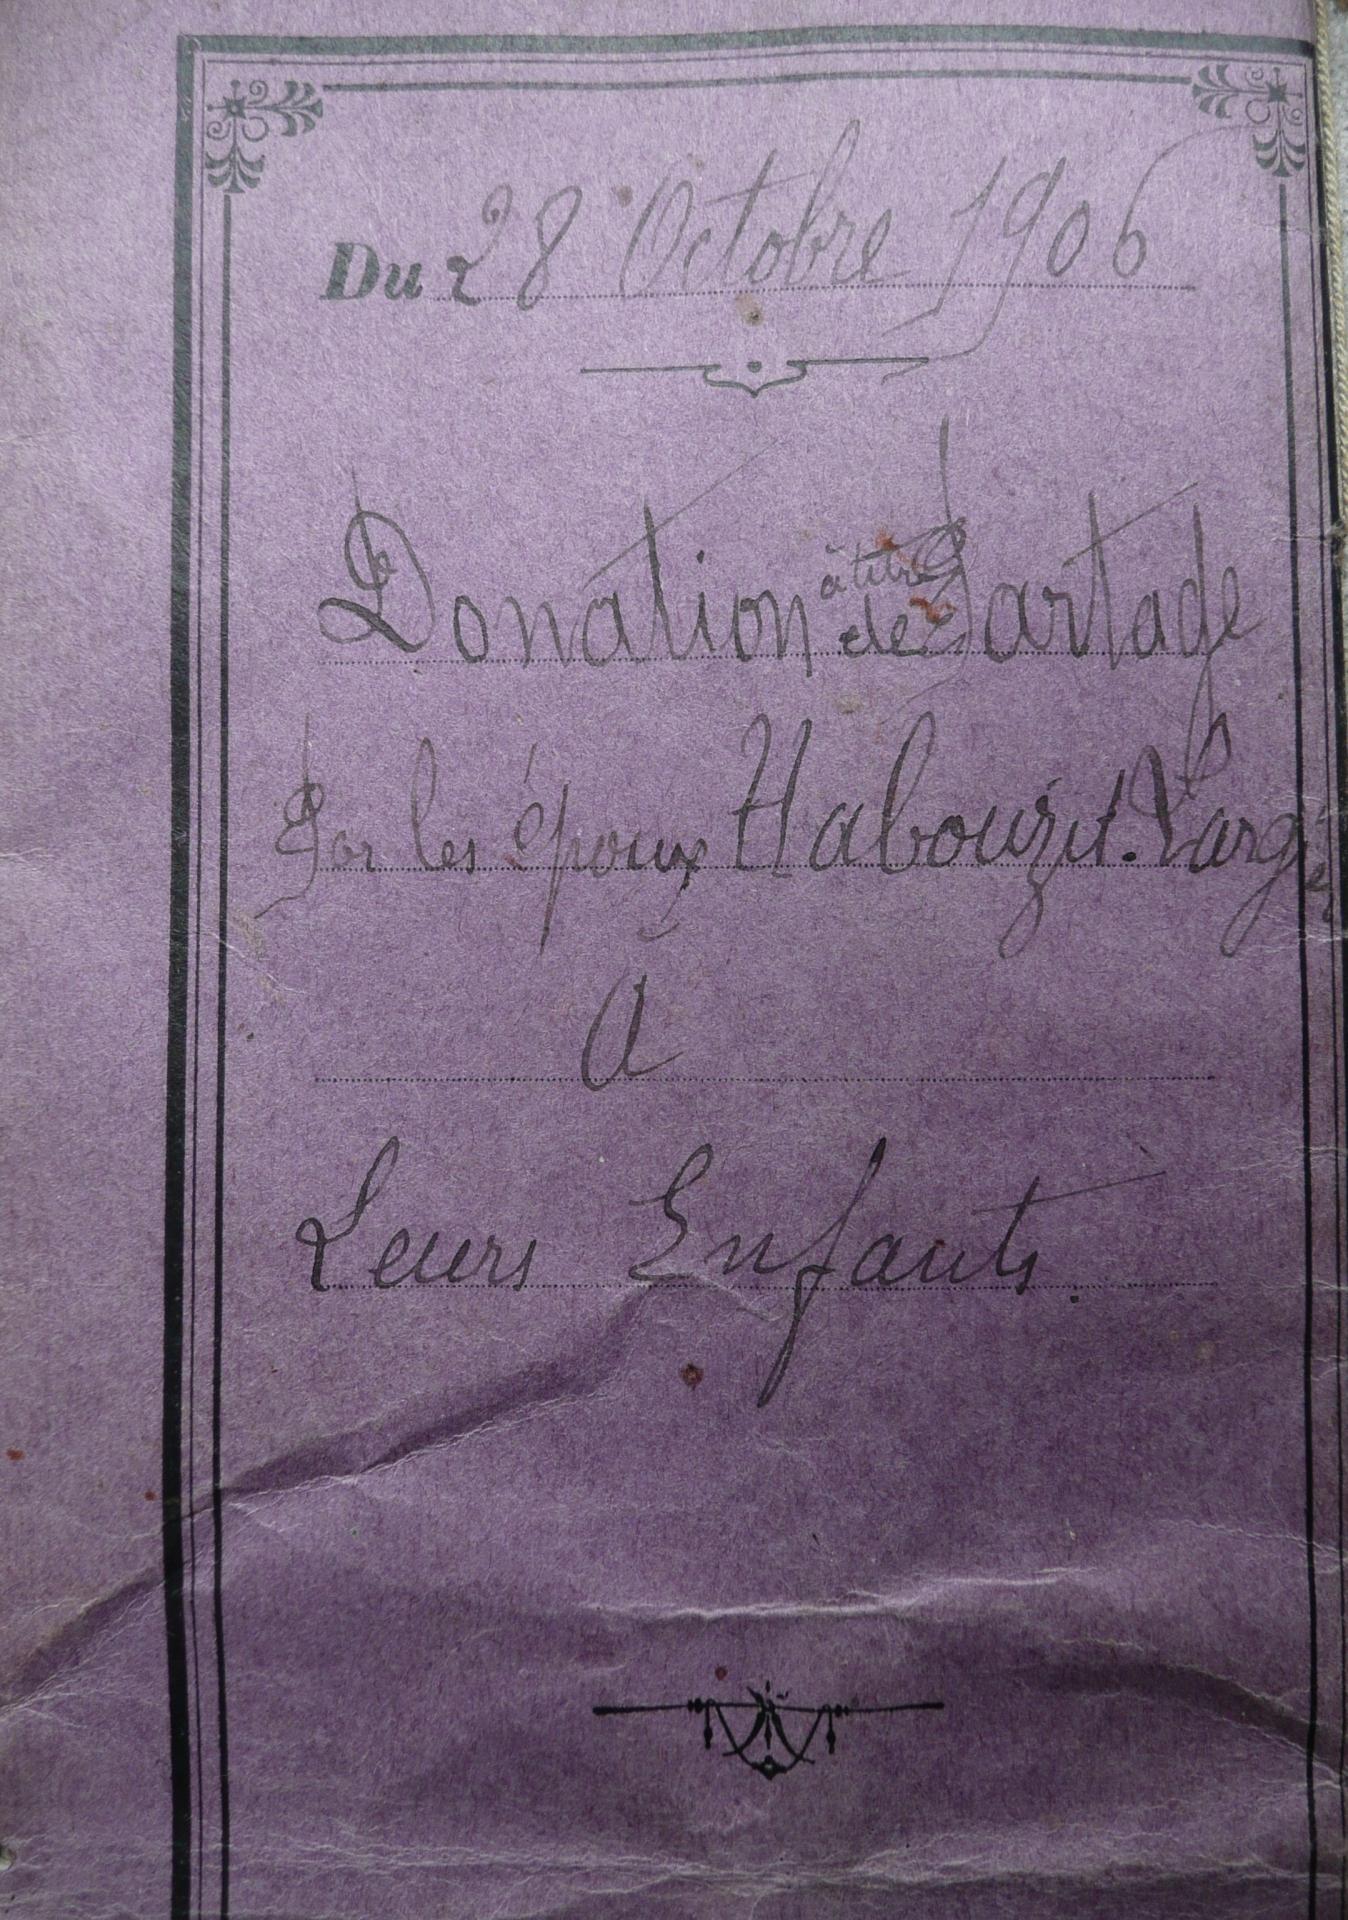 Du 28 Octobre 1906
Donation à titre de Partage
Par les époux Habouzit. Varg
A
Leurs Enfants.